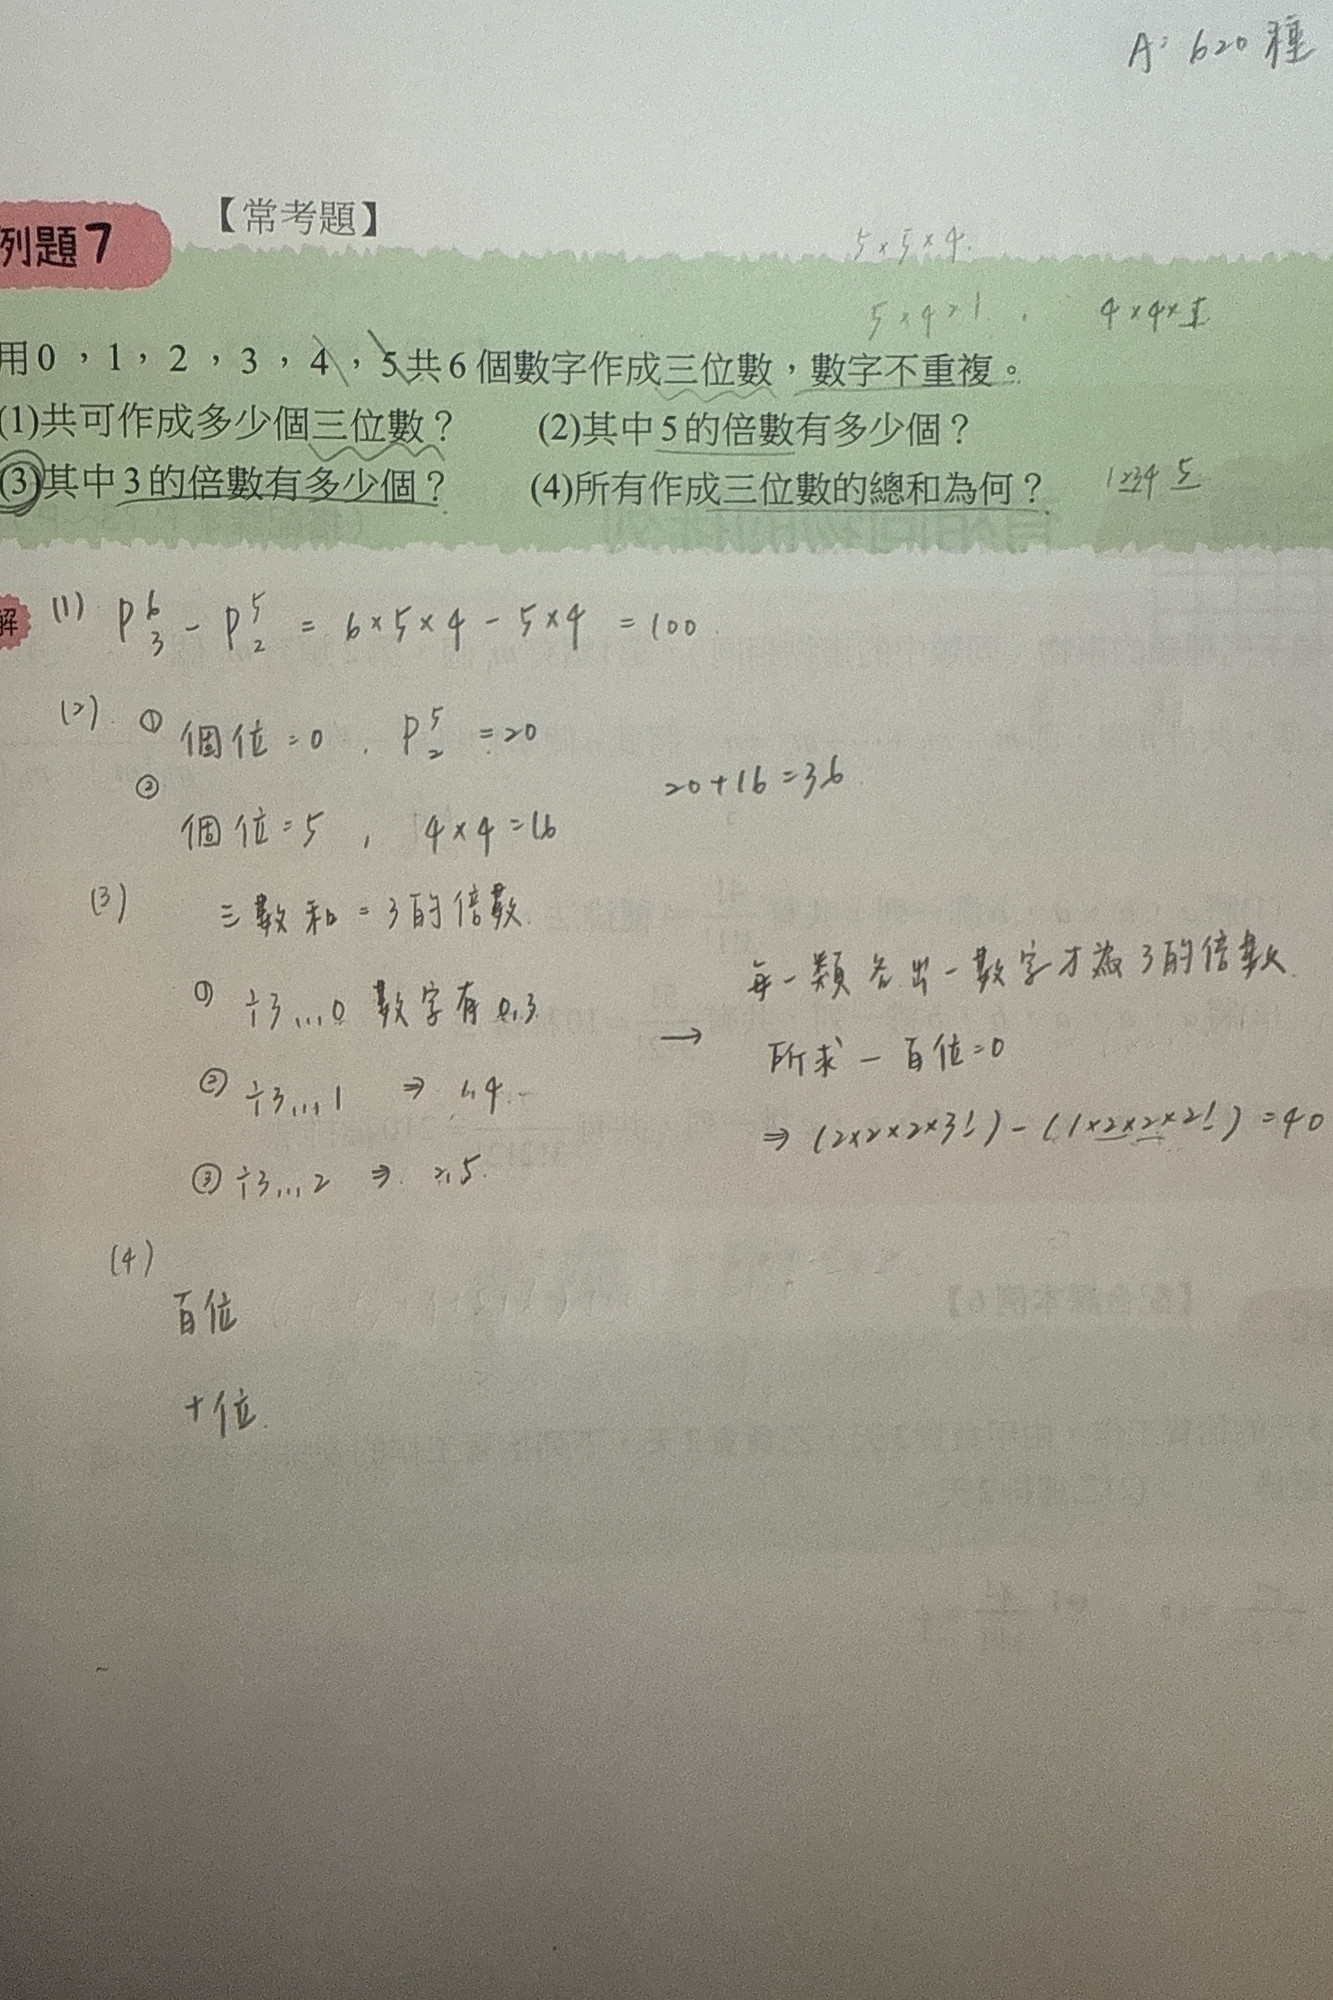 A: 620 種
【常考題】
列題7
5×5×4.
5×4×1 , 4×4×1
用0，1，2，3，4，5共6個數字作成三位數，數字不重複。
(1)共可作成多少個三位數？ (2)其中5的倍數有多少個？
(3)其中3的倍數有多少個？ (4)所有作成三位數的總和為何？ 1234 5
解 (1) P⁶₃ - P⁵₂ = 6×5×4 - 5×4 = 100
(2) ① 個位=0 , P⁵₂ = 20
20+16=36
② 個位=5 , 4×4=16
(3) 三數和=3的倍數
① ÷3...0 數字有0,3
② ÷3...1 ⇒ 1,4
③ ÷3...2 ⇒ 2,5
→ 每一類各出一數字才為3的倍數
所求-百位=0
⇒ (2×2×2×3!) - (1×2×2×2!) = 40
(4)
百位
十位